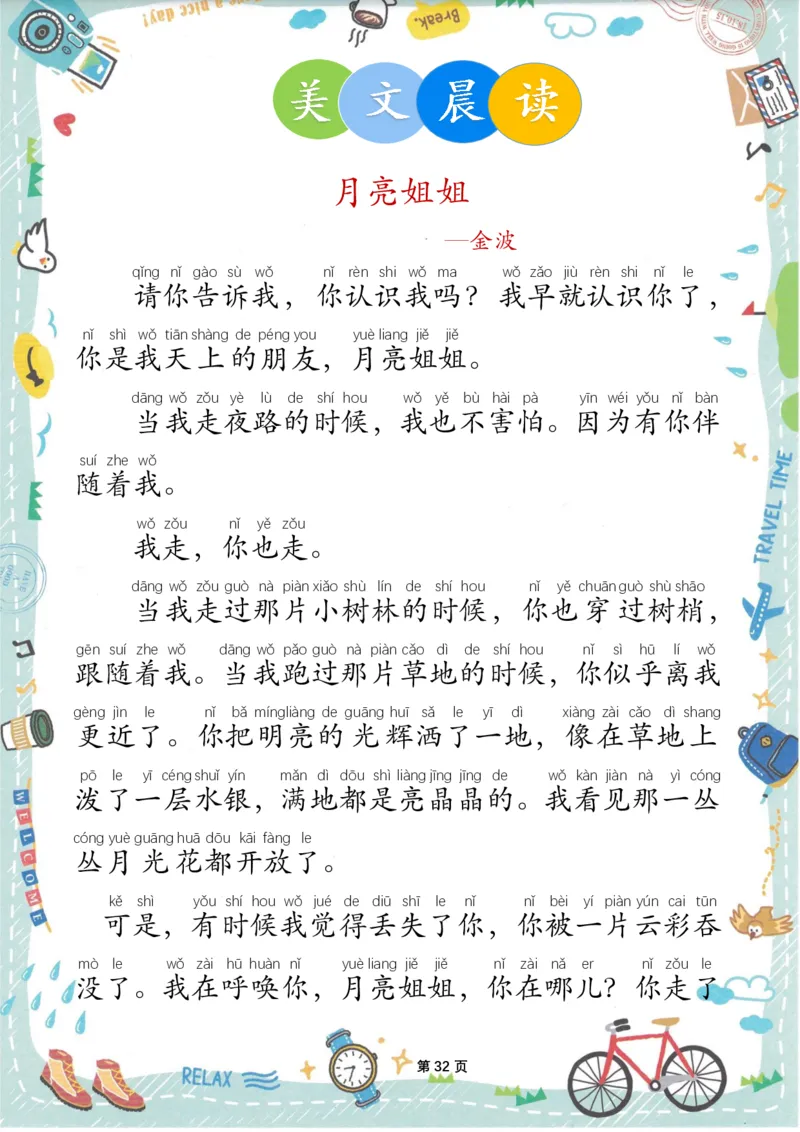 Break.
美文晨读
月亮姐姐
—金波
qǐng nǐ gào sù wǒ nǐ rèn shi wǒ ma wǒ zǎo jiù rèn shi nǐ le
请你告诉我，你认识我吗？我早就认识你了，
nǐ shì wǒ tiān shàng de péng you yuè liang jiě jiě
你是我天上的朋友，月亮姐姐。
dāng wǒ zǒu yè lù de shí hou wǒ yě bù hài pà yīn wéi yǒu nǐ bàn
当我走夜路的时候，我也不害怕。因为有你伴
suí zhe wǒ
随着我。
wǒ zǒu nǐ yě zǒu
我走，你也走。
dāng wǒ zǒu guò nà piàn xiǎo shù lín de shí hou nǐ yě chuān guò shù shāo
当我走过那片小树林的时候，你也穿过树梢，
gēn suí zhe wǒ dāng wǒ pǎo guò nà piàn cǎo dì de shí hou nǐ sì hū lí wǒ
跟随着我。当我跑过那片草地的时候，你似乎离我
gèng jìn le nǐ bǎ míng liàng de guāng huī sǎ le yī dì xiàng zài cǎo dì shang
更近了。你把明亮的光辉洒了一地，像在草地上
pō le yī céng shuǐ yín mǎn dì dōu shì liàng jīng jīng de wǒ kàn jiàn nà yì cóng
泼了一层水银，满地都是亮晶晶的。我看见那一丛
cóng yuè guāng huā dōu kāi fàng le
丛月光花都开放了。
kě shì yǒu shí hou wǒ jué de diū shī le nǐ nǐ bèi yí piàn yún cai tūn
可是，有时候我觉得丢失了你，你被一片云彩吞
mò le wǒ zài hū huàn nǐ yuè liang jiě jiě nǐ zài nǎ er nǐ zǒu le
没了。我在呼唤你，月亮姐姐，你在哪儿？你走了
TRAVEL TIME
WELCOME
RELAX
第 32 页